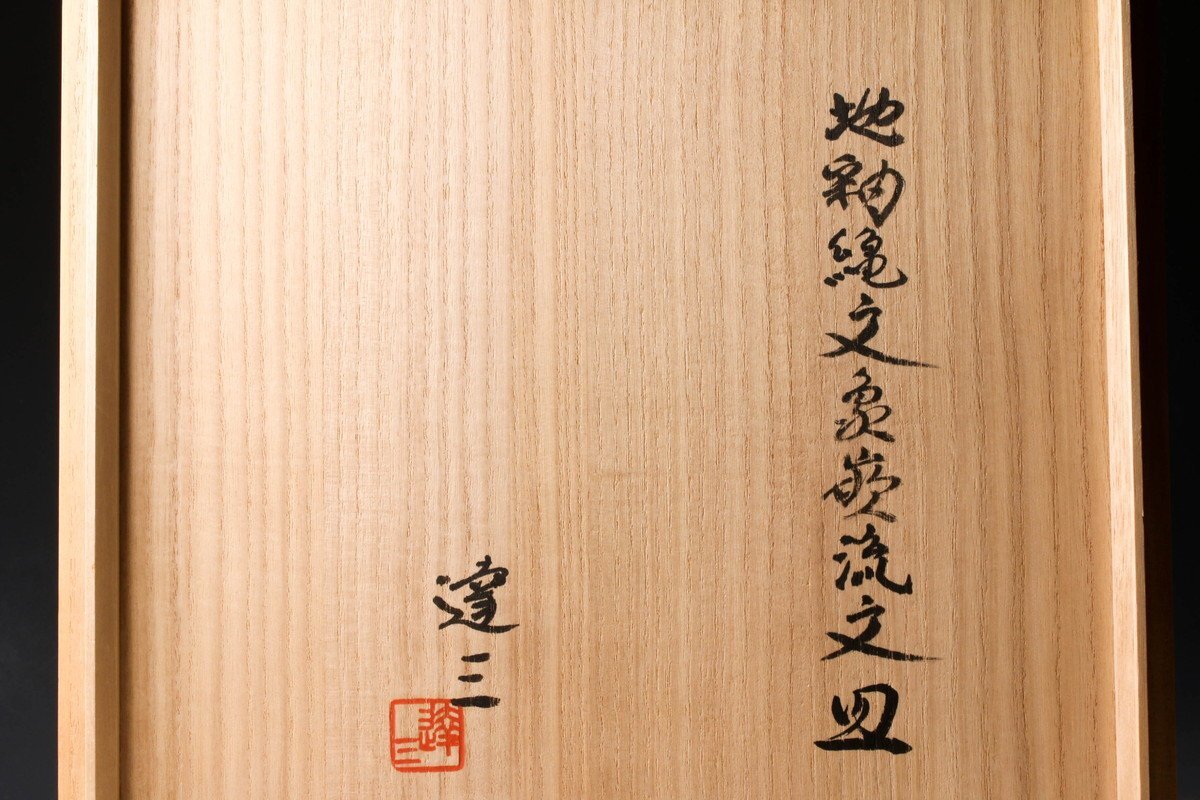 地釉縄文象嵌流文皿
達三
達三